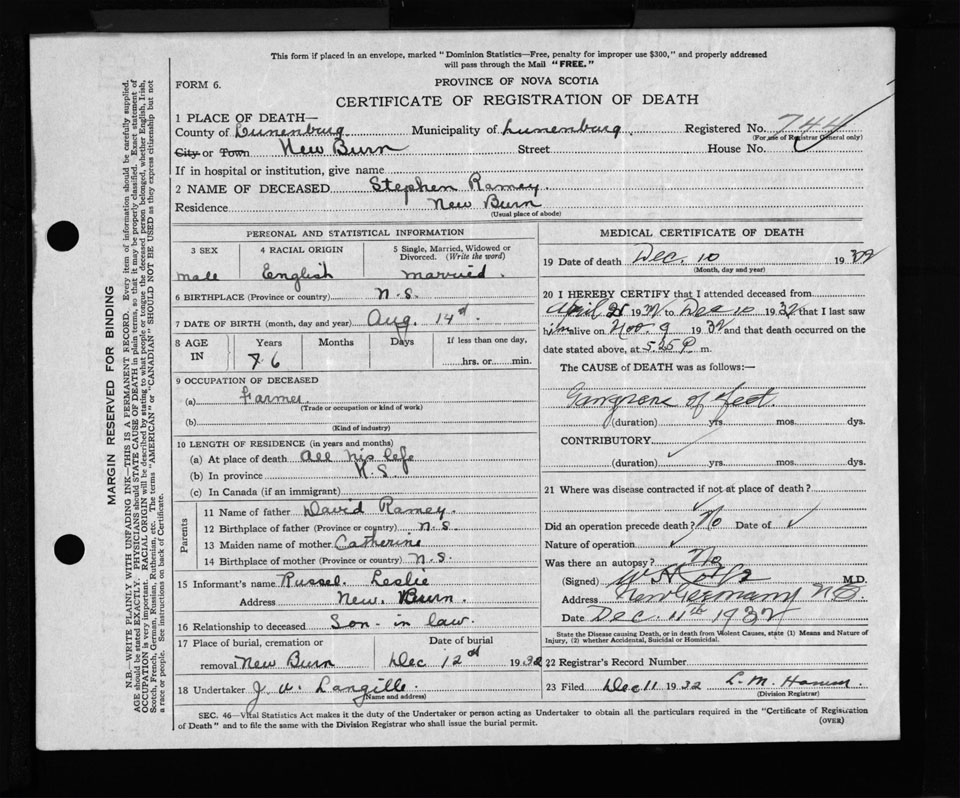 This form if placed in an envelope, marked "Dominion Statistics—Free, penalty for improper use $300," and properly addressed
will pass through the Mail "FREE."
FORM 6.
PROVINCE OF NOVA SCOTIA
CERTIFICATE OF REGISTRATION OF DEATH
1 PLACE OF DEATH—
County of Lunenburg Municipality of Lunenburg Registered No. 744
(For use of Registrar General only)
City or Town New Burn Street House No.
If in hospital or institution, give name
2 NAME OF DECEASED Stephen Ramey
Residence New Burn
(Usual place of abode)
PERSONAL AND STATISTICAL INFORMATION
3 SEX 4 RACIAL ORIGIN 5 Single, Married, Widowed or Divorced. (Write the word)
male English married.
6 BIRTHPLACE (Province or country) N.S.
7 DATE OF BIRTH (month, day and year) Aug. 14th.
8 AGE IN Years Months Days If less than one day,
76 hrs. or min.
9 OCCUPATION OF DECEASED
(a) Farmer.
(Trade or occupation or kind of work)
(b)
(Kind of industry)
10 LENGTH OF RESIDENCE (in years and months)
(a) At place of death all his life
(b) In province N.S
(c) In Canada (if an immigrant)
Parents
11 Name of father David Ramey.
12 Birthplace of father (Province or country) N.S.
13 Maiden name of mother Catherine
14 Birthplace of mother (Province or country) N.S.
15 Informant's name Russel. Leslie
Address New. Burn.
16 Relationship to deceased Son-in law.
17 Place of burial, cremation or Date of burial
removal New Burn Dec 12th 1932
18 Undertaker J. W. Langille.
(Name and address)
MEDICAL CERTIFICATE OF DEATH
19 Date of death Dec. 10 1932
(Month, day and year)
20 I HEREBY CERTIFY that I attended deceased from
April 1932 to Dec 10 1932 that I last saw
him alive on Nov. 9 1932 and that death occurred on the
date stated above, at 5.25 P m.
The CAUSE of DEATH was as follows:—
Gangrene of feet.
(duration) yrs. mos. dys.
CONTRIBUTORY
(duration) yrs. mos. dys.
21 Where was disease contracted if not at place of death?
Did an operation precede death? No Date of
Nature of operation
Was there an autopsy? No
(Signed) M.D.
Address New Germany N.S.
Date Dec. 11th 1932
State the Disease causing Death, or in death from Violent Causes, state (1) Means and Nature of
Injury, (2) whether Accidental, Suicidal or Homicidal.
22 Registrar's Record Number
23 Filed Dec 11 1932 L. M.
(Division Registrar)
SEC. 46—Vital Statistics Act makes it the duty of the Undertaker or person acting as Undertaker to obtain all the particulars required in the "Certificate of Registration
of Death" and to file the same with the Division Registrar who shall issue the burial permit. (OVER)
MARGIN RESERVED FOR BINDING
N.B.—WRITE PLAINLY WITH UNFADING INK—THIS IS A PERMANENT RECORD. Every item of information should be carefully supplied.
AGE should be stated EXACTLY. PHYSICIANS should STATE CAUSE OF DEATH in plain terms, so that it may be properly classified. Exact statement of
OCCUPATION is very important. RACIAL ORIGIN will be described by stating to what people or tongue the deceased person belonged, whether English, Irish,
Scotch, French, German, Russian, Ruthenian, etc. The terms "AMERICAN" or "CANADIAN" SHOULD NOT BE USED as they express citizenship but not
a race or people. See instructions on back of Certificate.